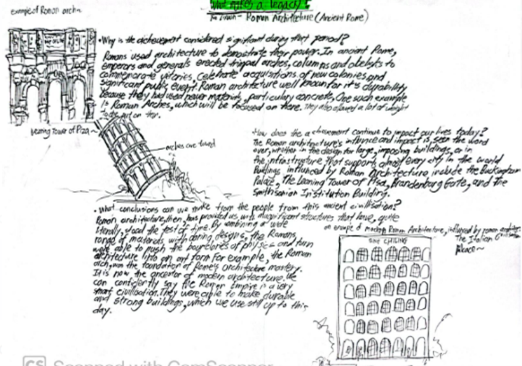 What makes a legacy?
example of Roman arch
Roman Architecture (Ancient Rome)
• Why is the achievement considered significant during that period?
Romans used architecture to demonstrate their power. In ancient Rome,
emperors and generals erected triumphal arches, columns and obelisks to
commemorate victories, celebrate acquisitions of new colonies and
significant public events. Roman architecture well known for it's durability
because they had used newer materials, particularly concrete. One such example
is Roman Arches, which will be focused on here. They also placed a lot of
leaning Tower of Pisa
arches are found
• How does the achievement continue to impact our lives today?
The Roman architecture's influence and impact is seen the world
over, whether in the design for large, imposing buildings, or in
the infrastructure that supports almost every city in the world
Buildings influenced by Roman Architecture include the Buckingham
Palace, the Leaning Tower of Pisa, Brandenburg Gate, and the
Smithsonian Institution Building.
• What conclusions can we make from the people from this ancient civilisation?
Roman architecture, then, has provided us with magnificent structures that have, quite
literally, stood the test of time. By combining a wide
range of materials with daring designs, the Romans
were able to push the boundaries of physics and turn
architecture into an art form for example, the Roman
arch, was the foundation of Rome's architecture mastery.
It is now the ancestor of modern architecture. We
can confidently say the Roman Empire is a very
smart civilisation. They were able to make durable
and strong buildings, which we use still up to this
day.
an example of modern Roman Architecture, influenced by roman
The Italian
Palace
CS Scanned with CamScanner